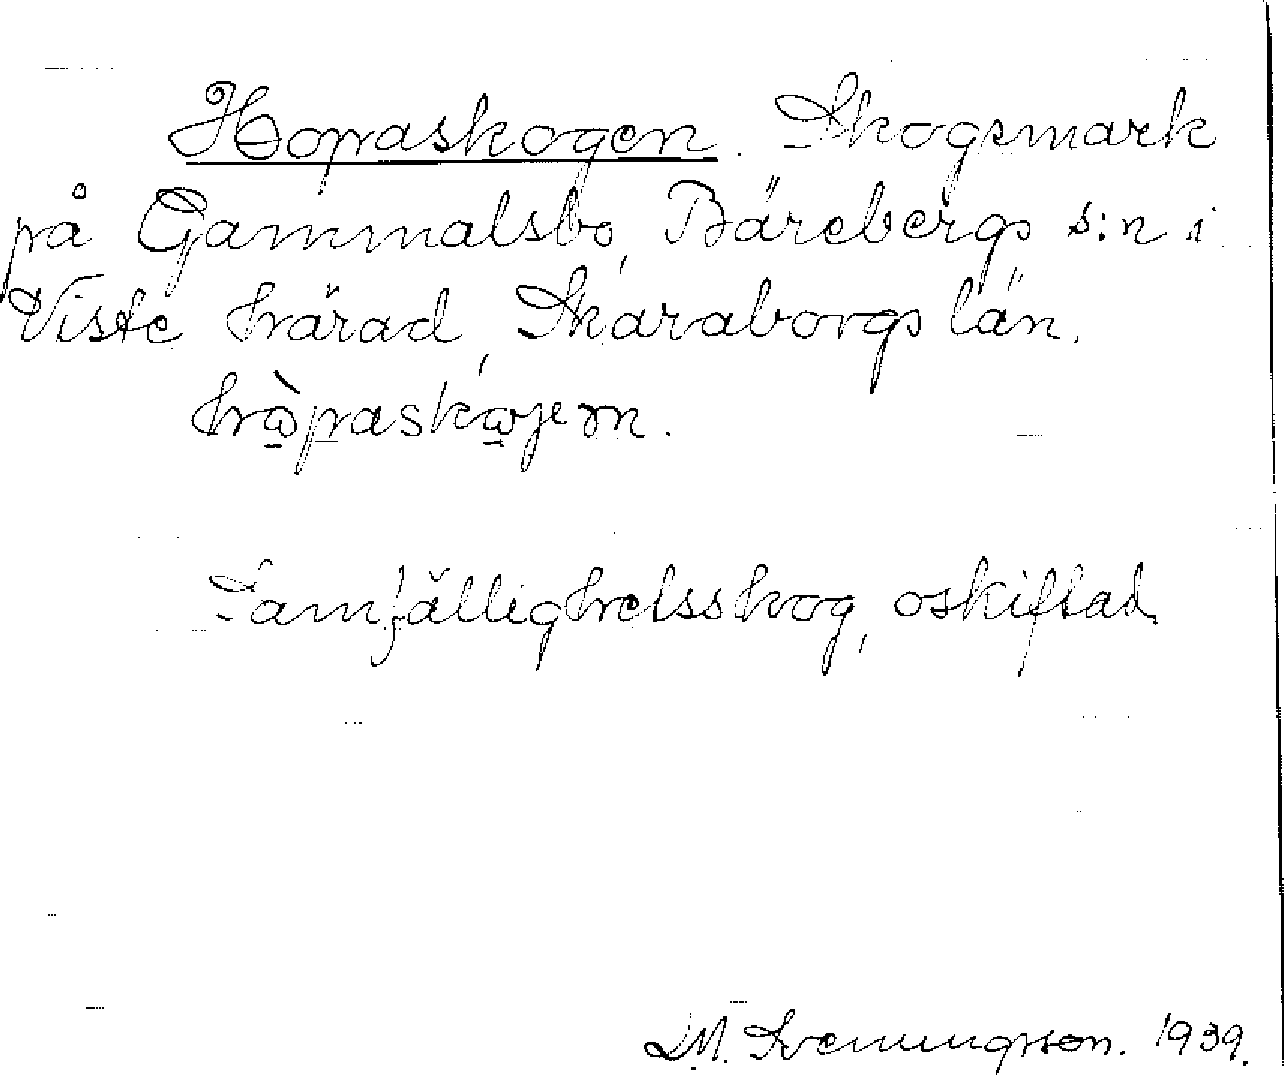 Hopaskogen. Skogsmark
på Gammalsbo, Bärebergs s:n i
Viste härad, Skaraborgs län.
hὼ̠paskω̠jen.
Samfällighetsskog, oskiftad.
D.M. Svenungsson. 1939.